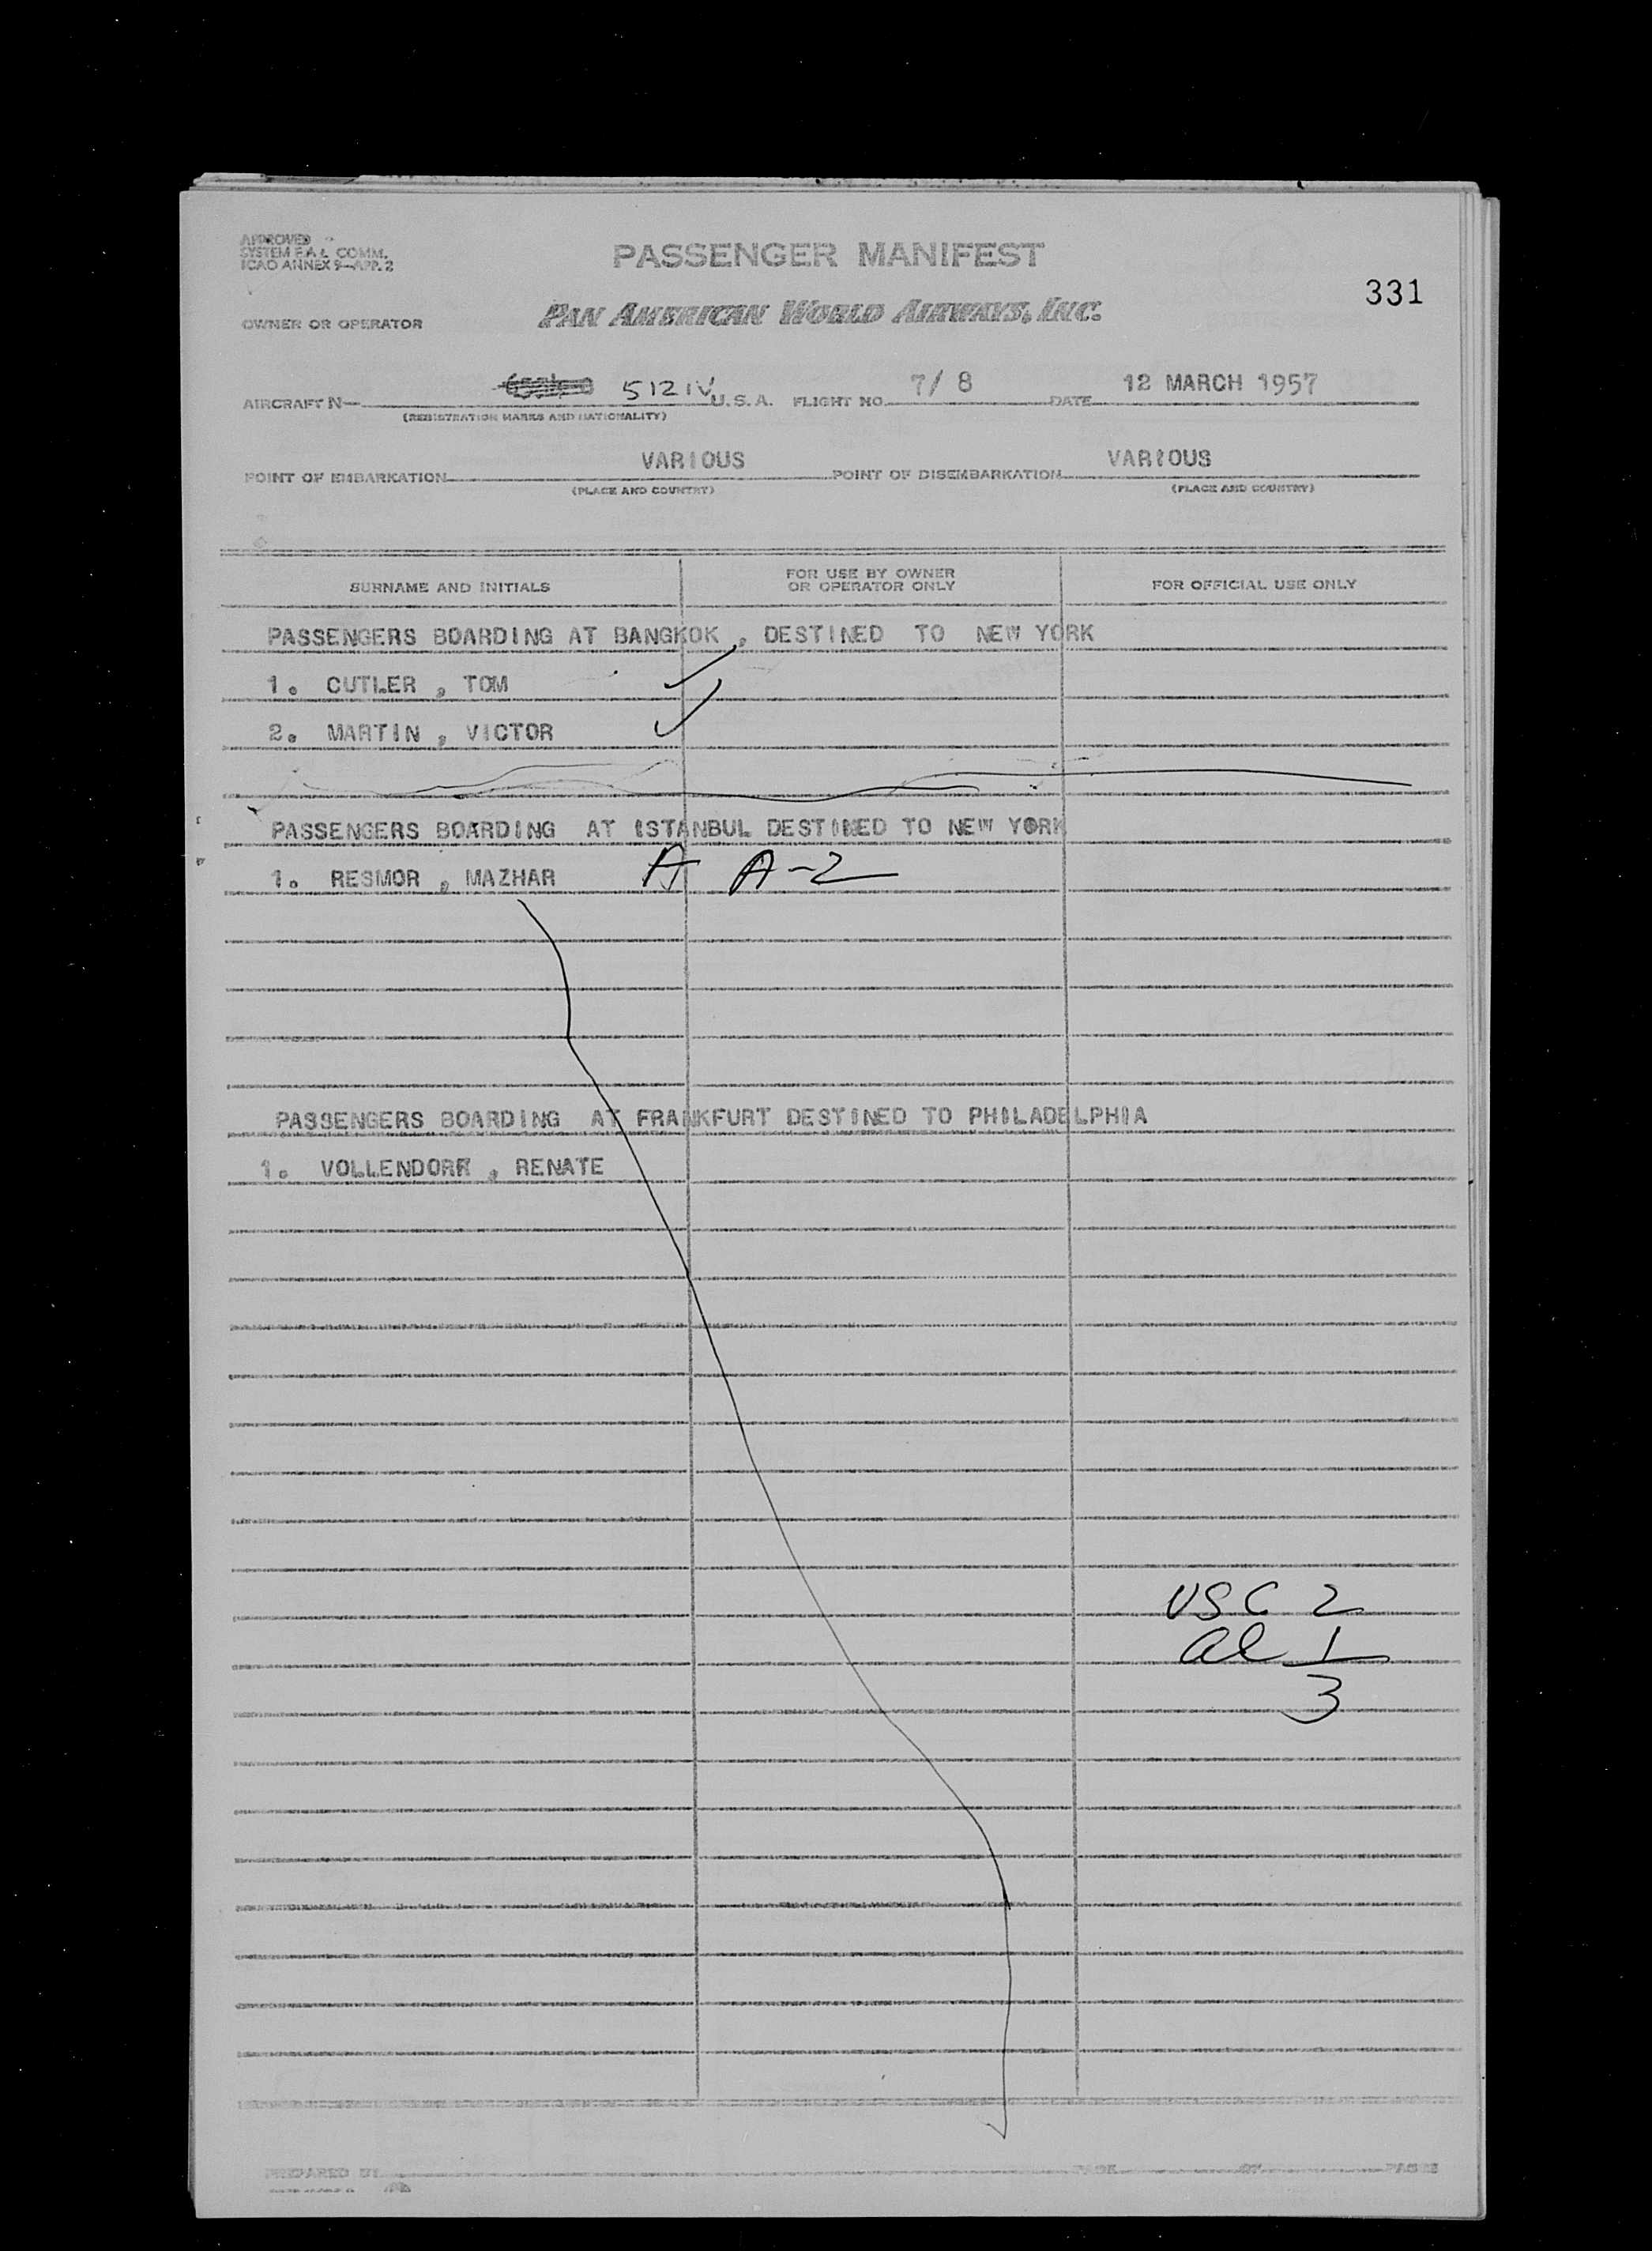 APPROVED
SYSTEM F.A.L. COMM.
ICAO ANNEX 9—APP. 2
PASSENGER MANIFEST
331
OWNER OR OPERATOR PAN AMERICAN WORLD AIRWAYS, INC.
AIRCRAFT N— 5121V U.S.A. FLIGHT NO. 7/ 8 DATE 12 MARCH 1957
(REGISTRATION MARKS AND NATIONALITY)
POINT OF EMBARKATION VARIOUS POINT OF DISEMBARKATION VARIOUS
(PLACE AND COUNTRY) (PLACE AND COUNTRY)
SURNAME AND INITIALS FOR USE BY OWNER OR OPERATOR ONLY FOR OFFICIAL USE ONLY
PASSENGERS BOARDING AT BANGKOK , DESTINED TO NEW YORK
1. CUTLER , TOM
2. MARTIN , VICTOR
PASSENGERS BOARDING AT ISTANBUL DESTINED TO NEW YORK
1. RESMOR , MAZHAR A A-2
PASSENGERS BOARDING AT FRANKFURT DESTINED TO PHILADELPHIA
1. VOLLENDORF , RENATE
USC 2
al 1
3
PREPARED BY PAGE OF PAGES